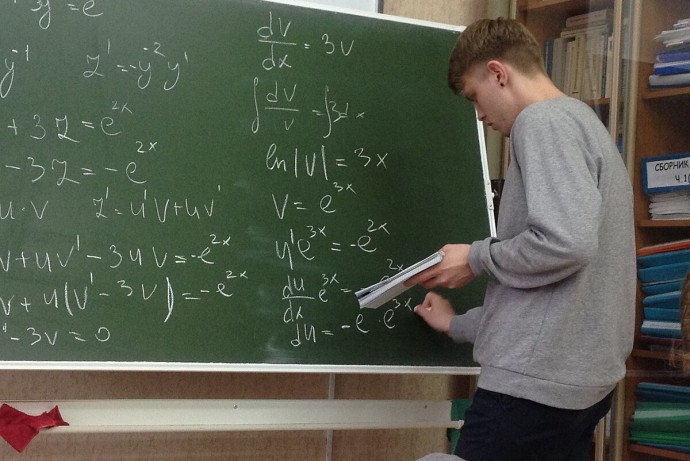 y = e
y⁻¹ z' = -y⁻² y'
+ 3z = e²ˣ
- 3z = -e²ˣ
u·v z' = u'v + uv'
v + uv' - 3uv = -e²ˣ
v + u(v' - 3v) = -e²ˣ
' - 3v = 0
dv/dx = 3v
∫ dv/v = ∫ 3dx
ln|v| = 3x
v = e³ˣ
u'e³ˣ = -e²ˣ
du/dx e³ˣ = e²ˣ
du = -e · e³ˣ
СБОРНИК
Ч.1